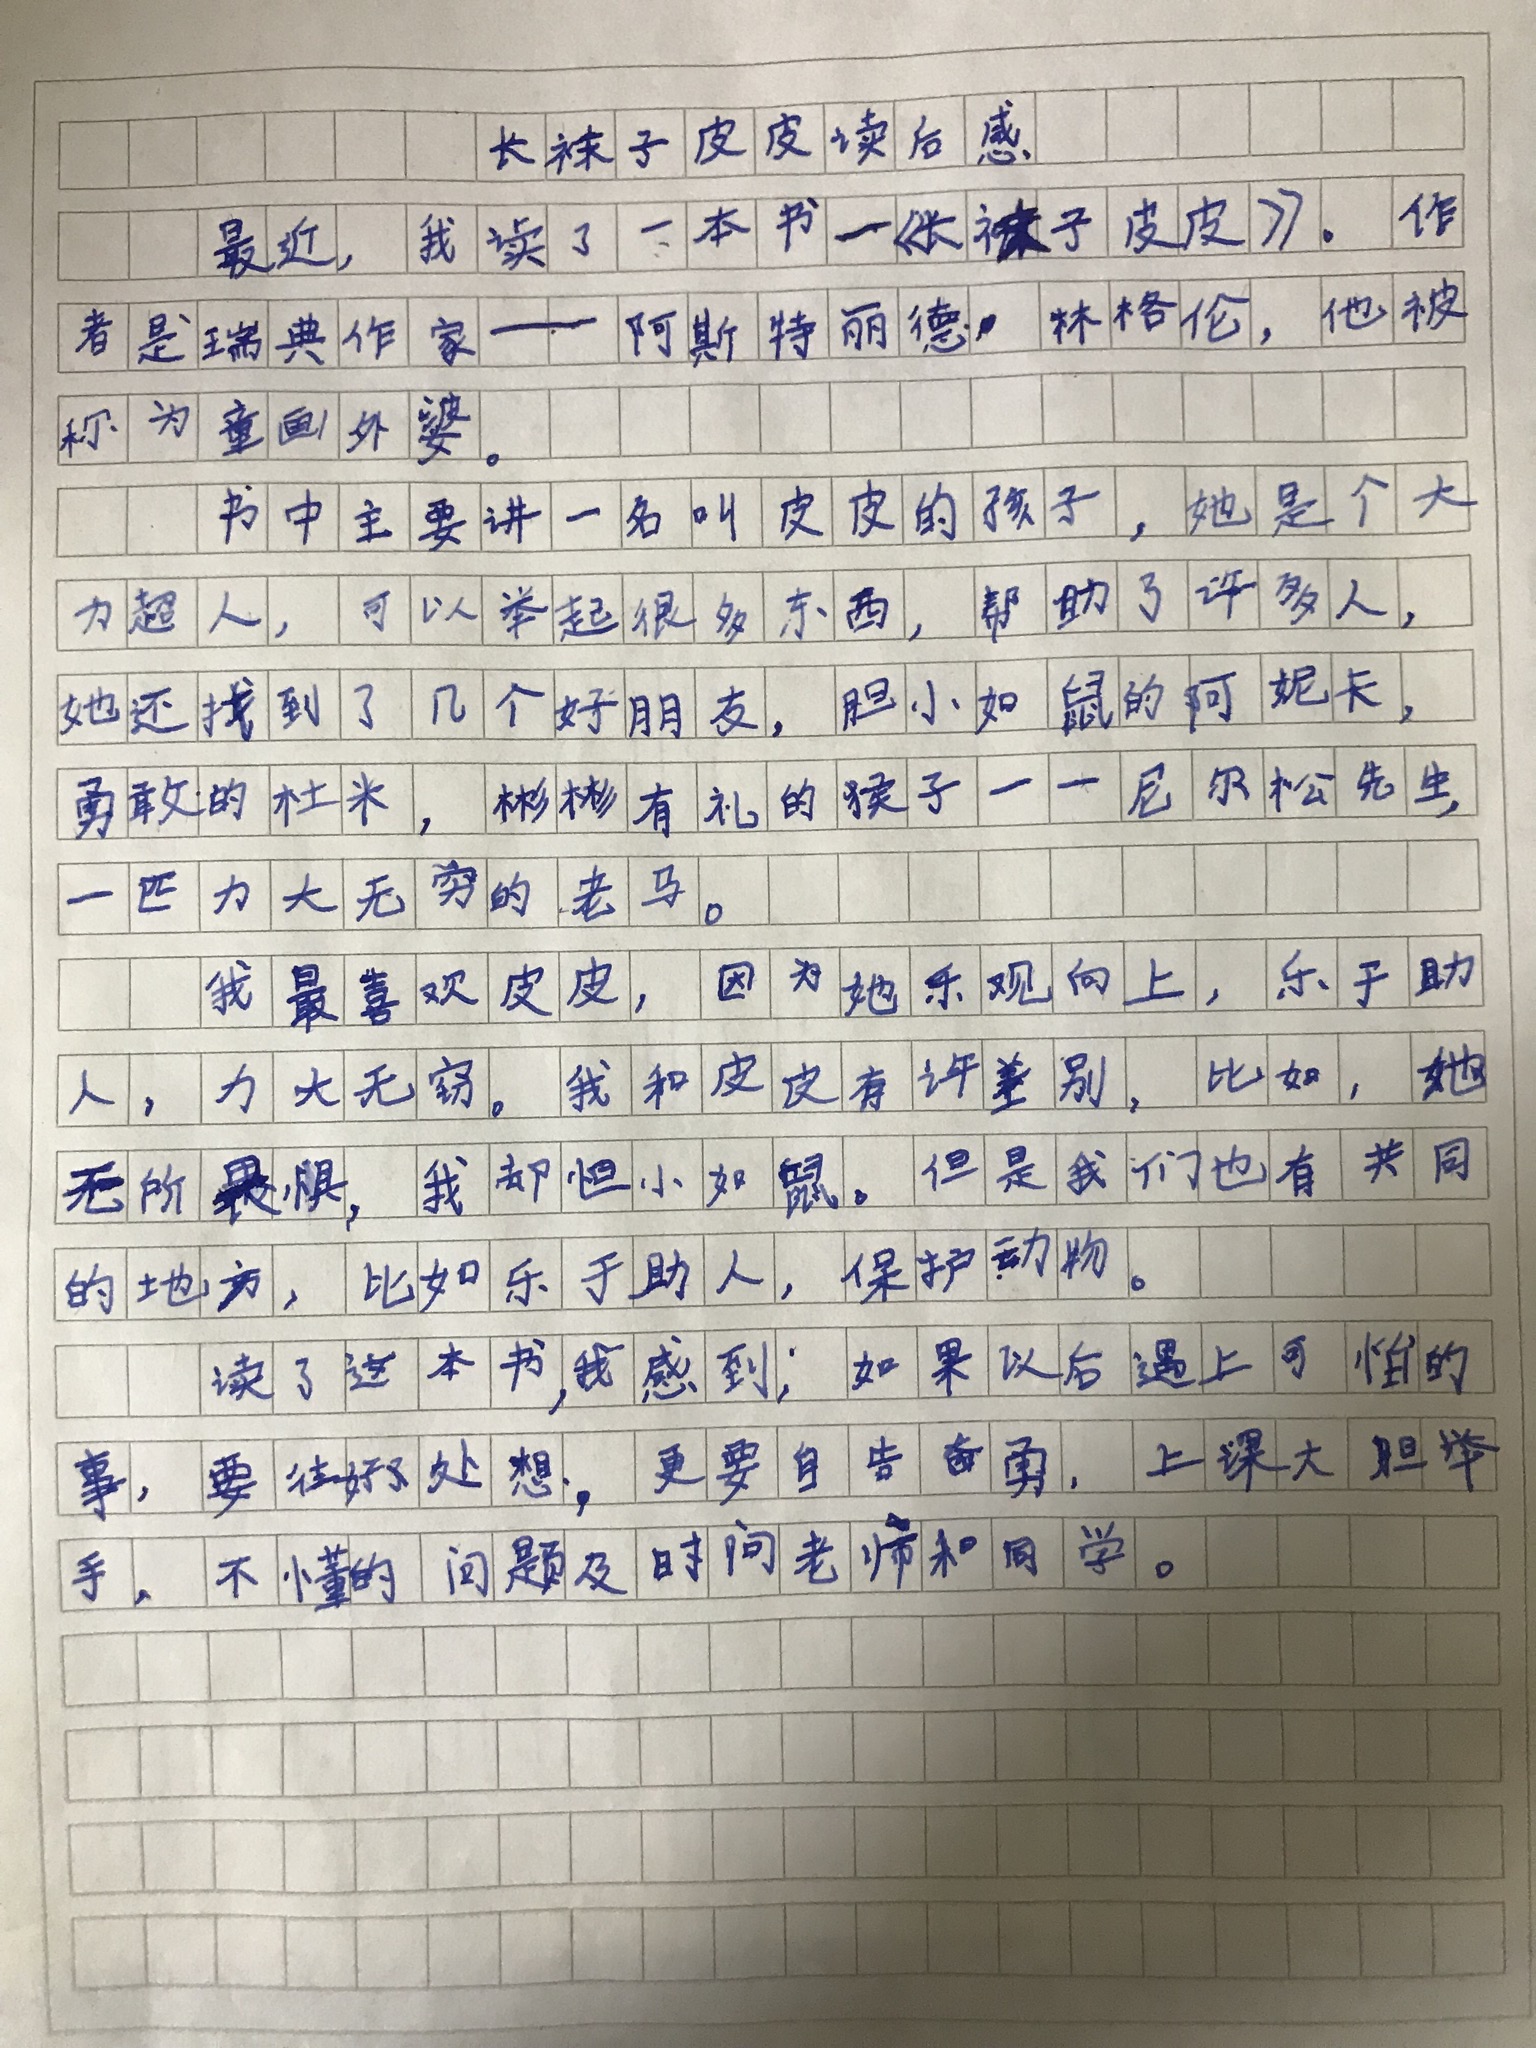 长袜子皮皮读后感
最近，我读了一本书—《长袜子皮皮》。作
者是瑞典作家——阿斯特丽德·林格伦，他被
称为童画外婆。
书中主要讲一名叫皮皮的孩子，她是个大
力超人，可以举起很多东西，帮助了许多人，
她还找到了几个好朋友，胆小如鼠的阿妮卡，
勇敢的杜米，彬彬有礼的猴子——尼尔松先生，
一匹力大无穷的老马。
我最喜欢皮皮，因为她乐观向上，乐于助
人，力大无穷。我和皮皮有许差别，比如，她
无所畏惧，我却胆小如鼠。但是我们也有共同
的地方，比如乐于助人，保护动物。
读了这本书，我感到；如果以后遇上可怕的
事，要往好处想，更要自告奋勇，上课大胆举
手，不懂的问题及时问老师和同学。